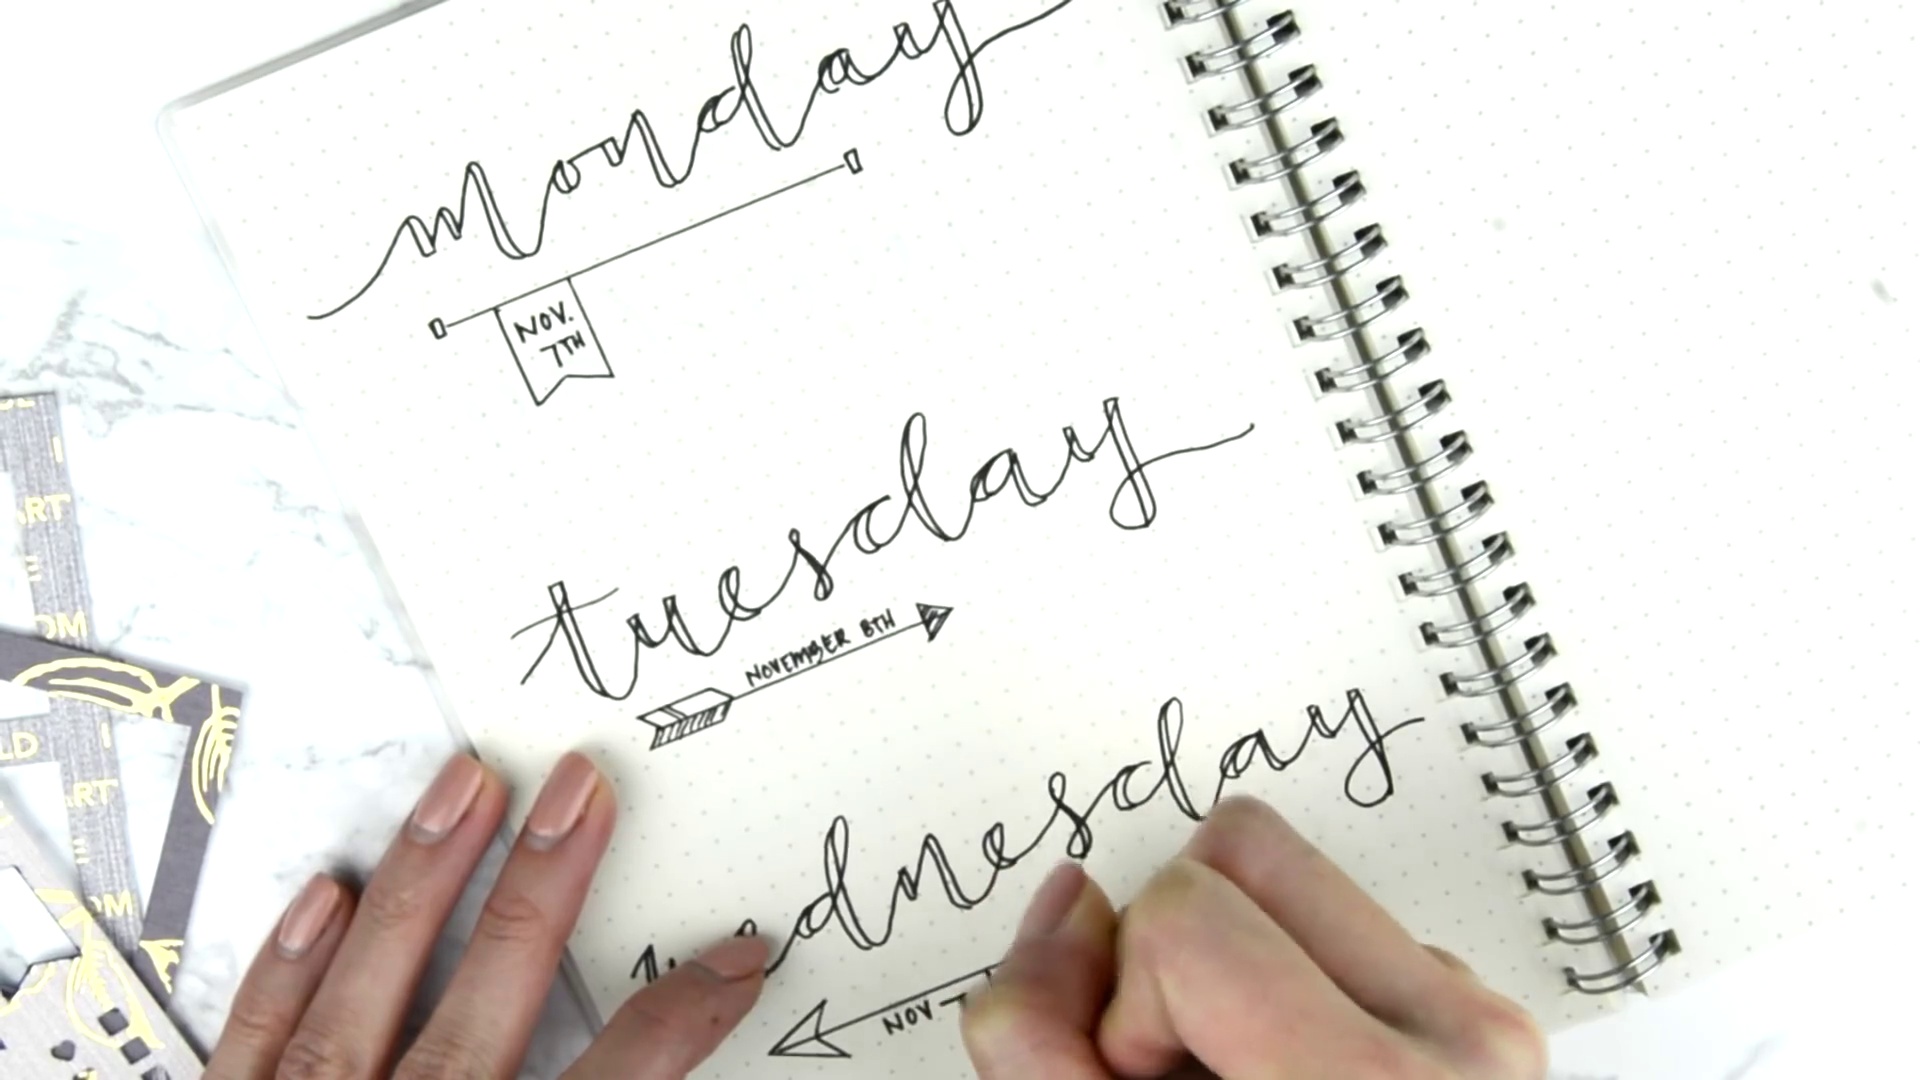 monday
NOV.
7TH
tuesday
NOVEMBER 8TH
wednesday
NOV
ART
E
OM
LD I
ART
E
OM